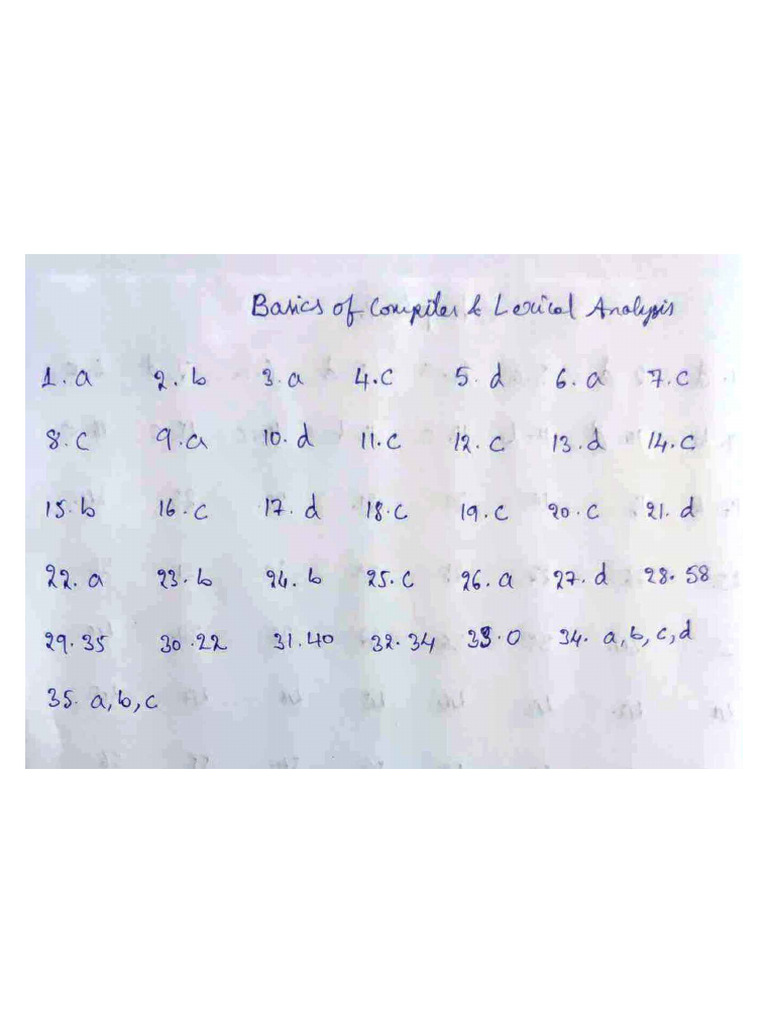 Basics of Compiler & Lexical Analysis
1. a 2. b 3. a 4. c 5. d 6. a 7. c
8. c 9. a 10. d 11. c 12. c 13. d 14. c
15. b 16. c 17. d 18. c 19. c 20. c 21. d
22. a 23. b 24. b 25. c 26. a 27. d 28. 58
29. 35 30. 22 31. 40 32. 34 33. 0 34. a, b, c, d
35. a, b, c